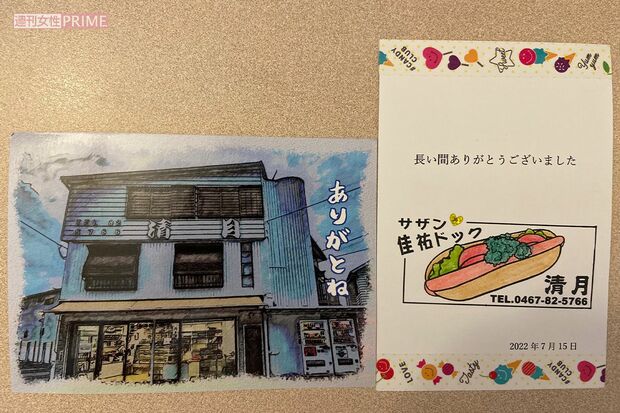 週刊女性PRIME
清月
ありがとね
#CANDY CLUB
Sweet
Yum yum
長い間ありがとうございました
サザン
佳祐ドック
清月
TEL.0467-82-5766
2022年7月15日
LOVE
Tasty
#CANDY CLUB